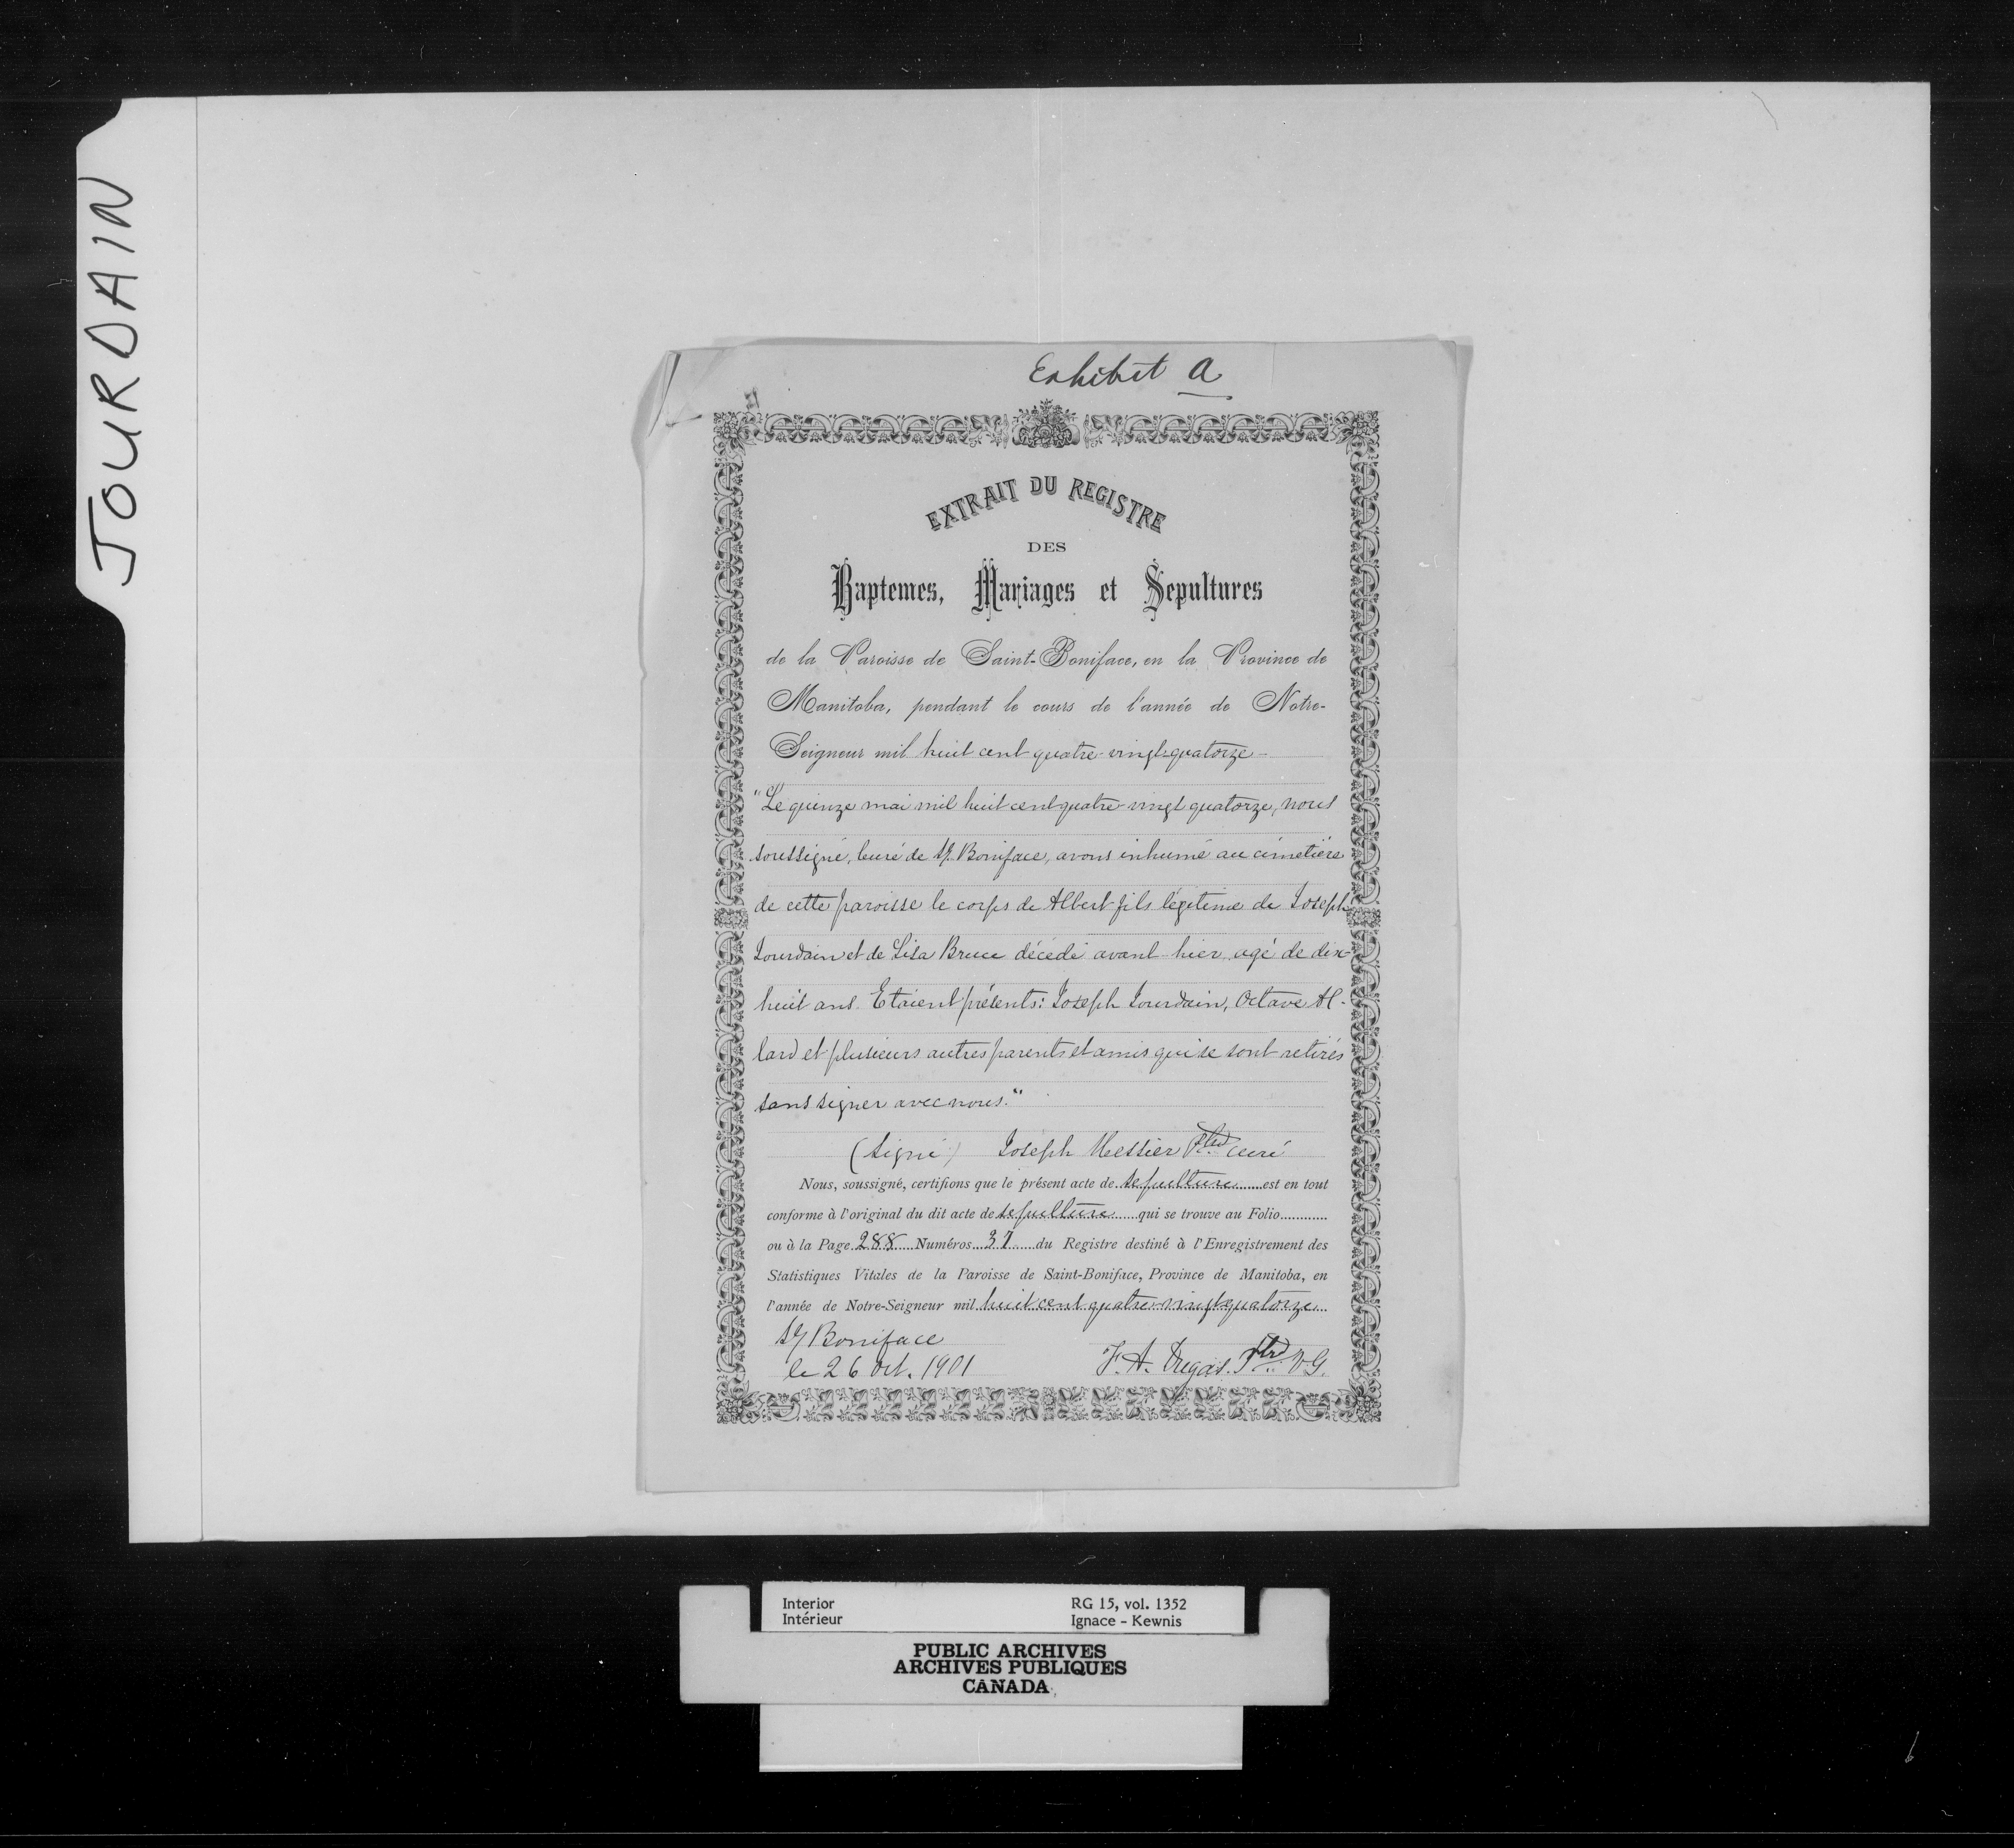 JOURDAIN
Exhibit A
EXTRAIT DU REGISTRE
DES
Baptemes, Mariages et Sepultures
de la Paroisse de Saint-Boniface, en la Province de
Manitoba, pendant le cours de l'année de Notre-
Seigneur mil huit cent quatre-vingt-quatorze
"Le quinze mai mil huit cent quatre-vingt quatorze, nous
soussigné, curé de St Boniface, avons inhumé au cimetière
de cette paroisse le corps de Albert fils légitime de Joseph
Jourdain et de Lisa Bruce décédé avant hier, agé de dix-
huit ans. Etaient présents: Joseph Jourdain, Octave Al-
lard et plusieurs autres parents et amis qui se sont retirés
sans signer avec nous."
(Signé) Joseph Messier Ptre curé
Nous, soussigné, certifions que le présent acte de sepulture est en tout
conforme à l'original du dit acte de sepulture qui se trouve au Folio
ou à la Page 288 Numéros 37 du Registre destiné à l'Enregistrement des
Statistiques Vitales de la Paroisse de Saint-Boniface, Province de Manitoba, en
l'année de Notre-Seigneur mil huit cent quatre-vingt quatorze
St Boniface
le 26 Oct. 1901 F. A. Dugas. Ptre V G.
Interior RG 15, vol. 1352
Intérieur Ignace - Kewnis
PUBLIC ARCHIVES
ARCHIVES PUBLIQUES
CANADA